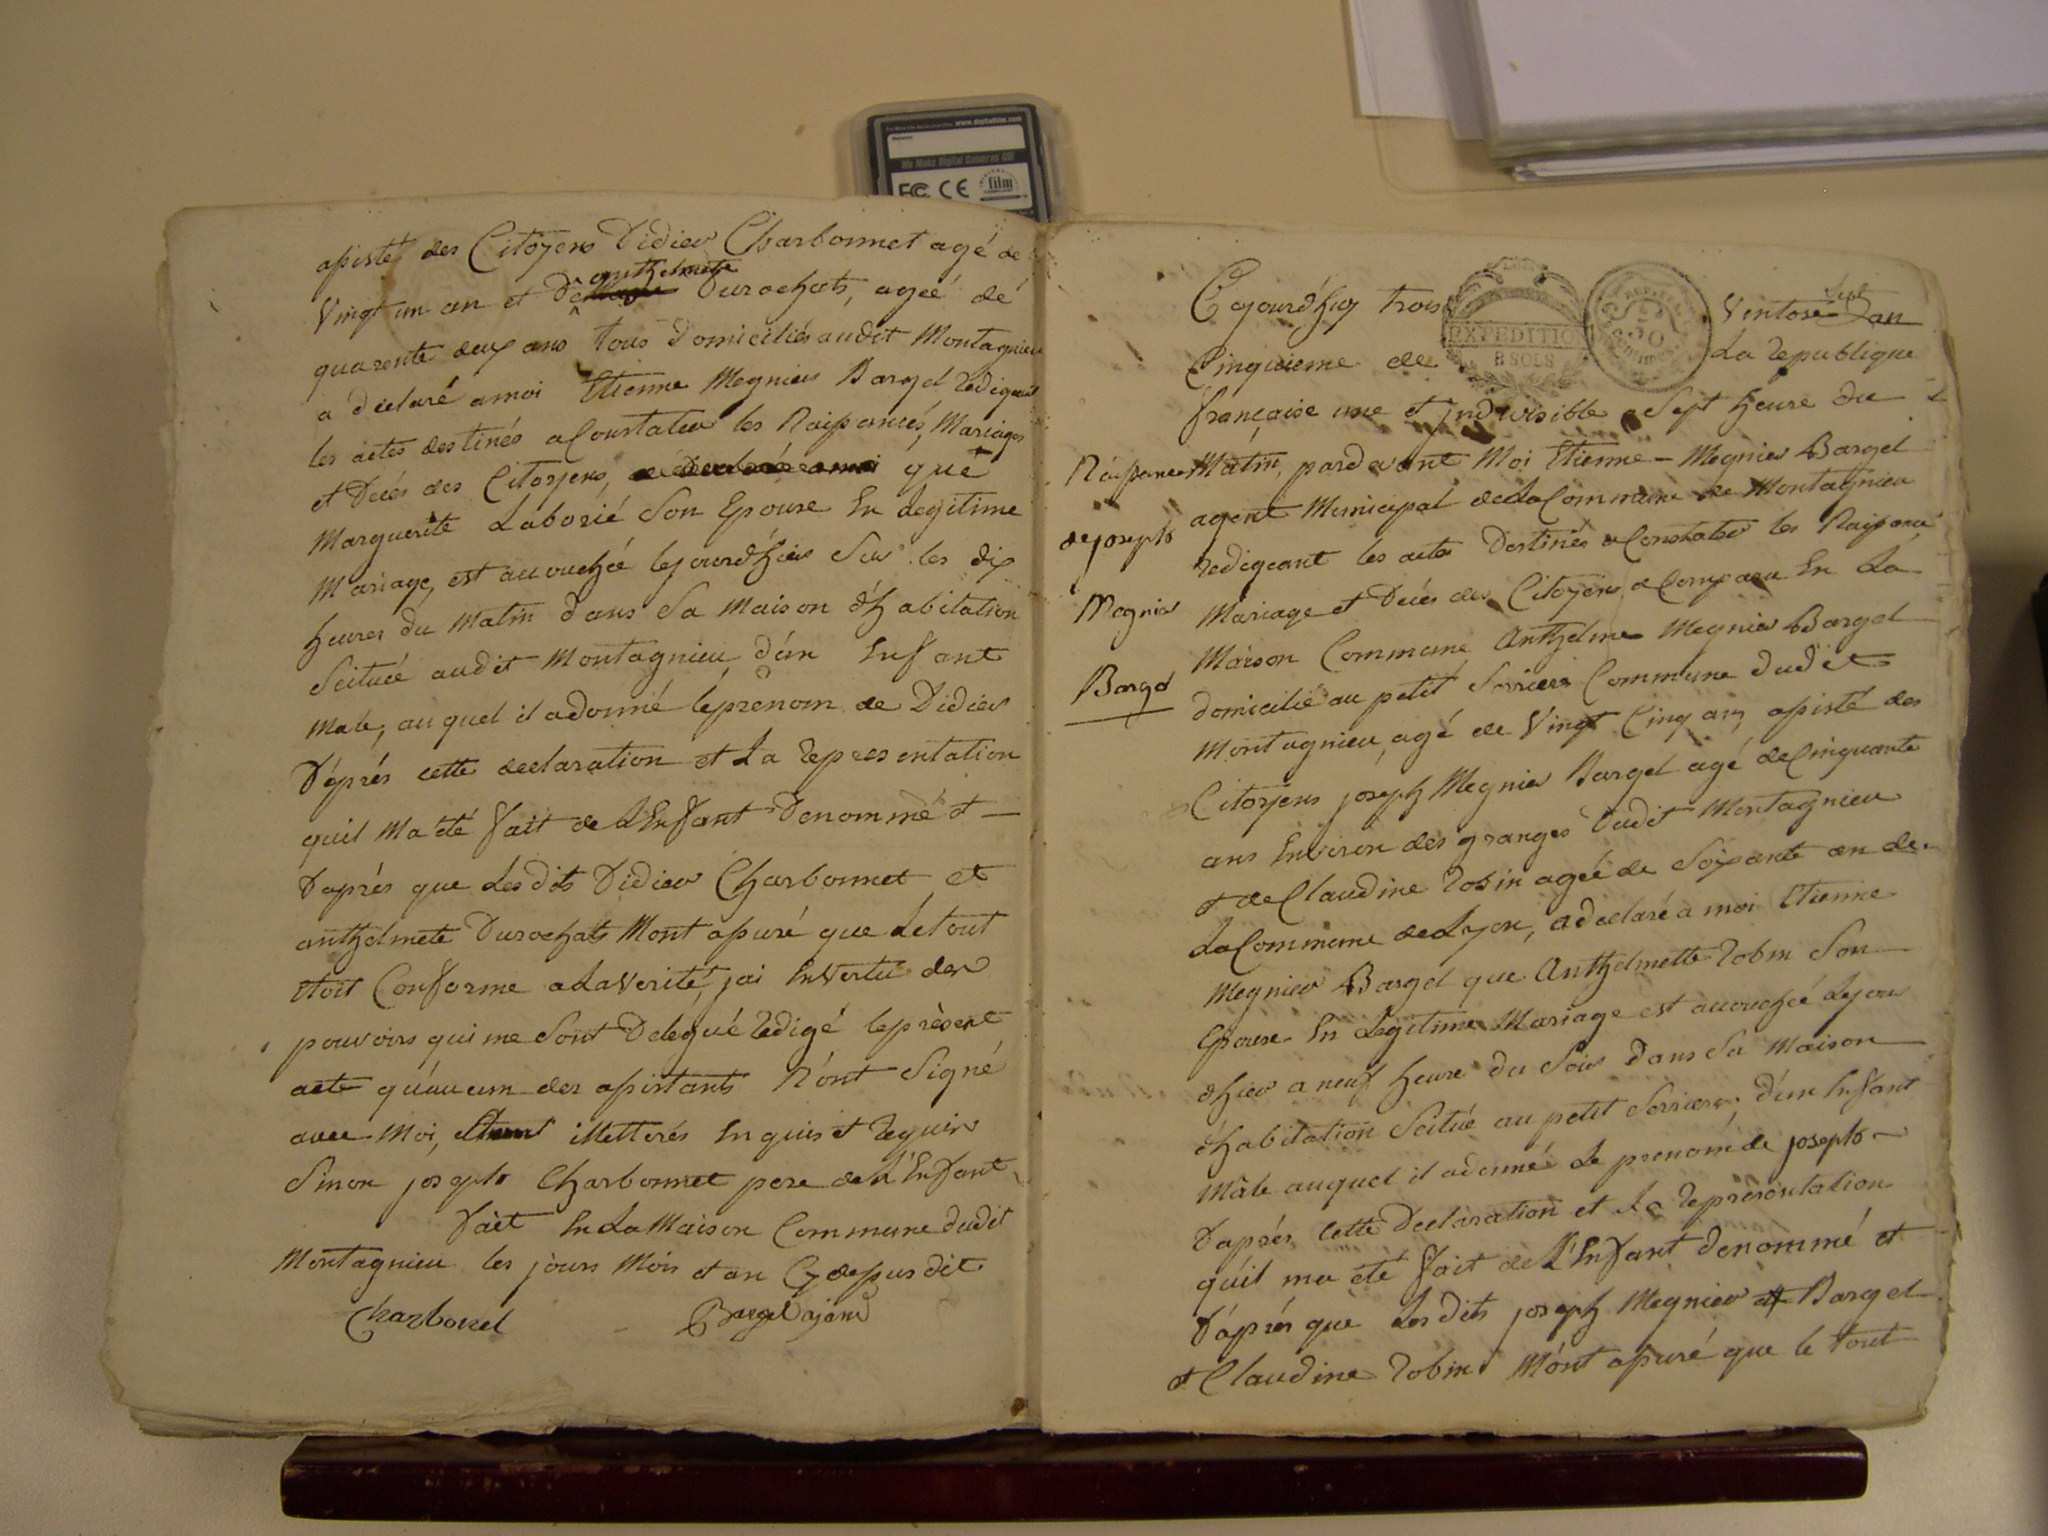 www.digitalfilm.com
We Make Digital Cameras Go!
FC CE film
apisté des Citoyens Didier Charbonnet agé de
Vingt un an et D'anthelmete Durochats, ageé dé
quarente deux ans tous Domiciliés audit Montagnieu
a déclaré a moi Etienne Megnier Bargel redigeant
les actes destinés a Constater les Naissances, Mariages
et Décés des Citoyens, a declaré a moi qué
Marguerite Laborié Son Epouse En Legitime
Mariage, est accouchée lejourd'hier Sur les dix
heures du Matin dans Sa Maison d'habitation
Scituée audit Montagnieu d'un Enfant
Male, auquel il adonné léprenom de Didier
D'éprés cette declaration et La representation
quil Ma été fait de L'Enfant Denommé et
D'aprés que Lesdits Didier Charbonnet et
anthelmete Durochats Mont assuré que Letout
etoit Conforme a La Verité, jai En Vertu des
pouvoirs qui me Sont Delegué redigé le présent
acte qu'aucun des assistants N'ont Signé
avec Moi, Etant illetterés Enquis et requis
Sinon joseph Charbonnet pere de L'Enfant
Fait En La Maison Commune dudit
Montagnieu les jours Mois et an Cy depus dit
Charbonel Bargel ajent
EXPEDITION
8 SOLS
Cejourd'huy trois Ventose Lan
Cinquieme de La republique
française une et jndivisible a Sept heure du
Naissance
de joseph
Megnier
Bargel
Matin, pardevant Moi Etienne - Megnier Bargel
agent Municipal de La Commune de Montagnieu
redigeant les actes Destinés a Constater les Naissance
Mariage et Décés des Citoyens a Comparu En La
Maison Commune Anthelme Megnier Bargel
domicilié au petit Serriere Commune dudit
Montagnieu, agé de Vingt Cinq ans apisté des
Citoyens joseph Megnier Bargel agé de Cinquante
ans Environ des granges Dudit Montagnieu
et de Claudine robin ageé de Soixante an de
La Commune de Lyon, a declaré a moi Etienne
Megnier Bargel que Anthelmette robin Son
Epouse En Legitime Mariage est accouchée Lejour
d'hier a neuf heure du Soir Dans Sa Maison
d'habitation Scitué au petit Serriere, d'un Enfant
Mâle auquel il adonné Le prenom de joseph
D'aprés cette Declaration et La representation
qu'il ma été fait de L'Enfant denommé et
D'aprés que Les dits joseph Megnier et Bargel
et Claudine robin M'ont assuré que le tout